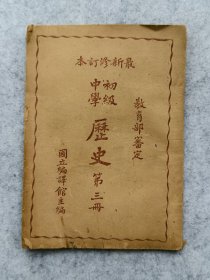 最新修訂本
教育部審定
初級
中學
歷史
第三冊
國立編譯館主編